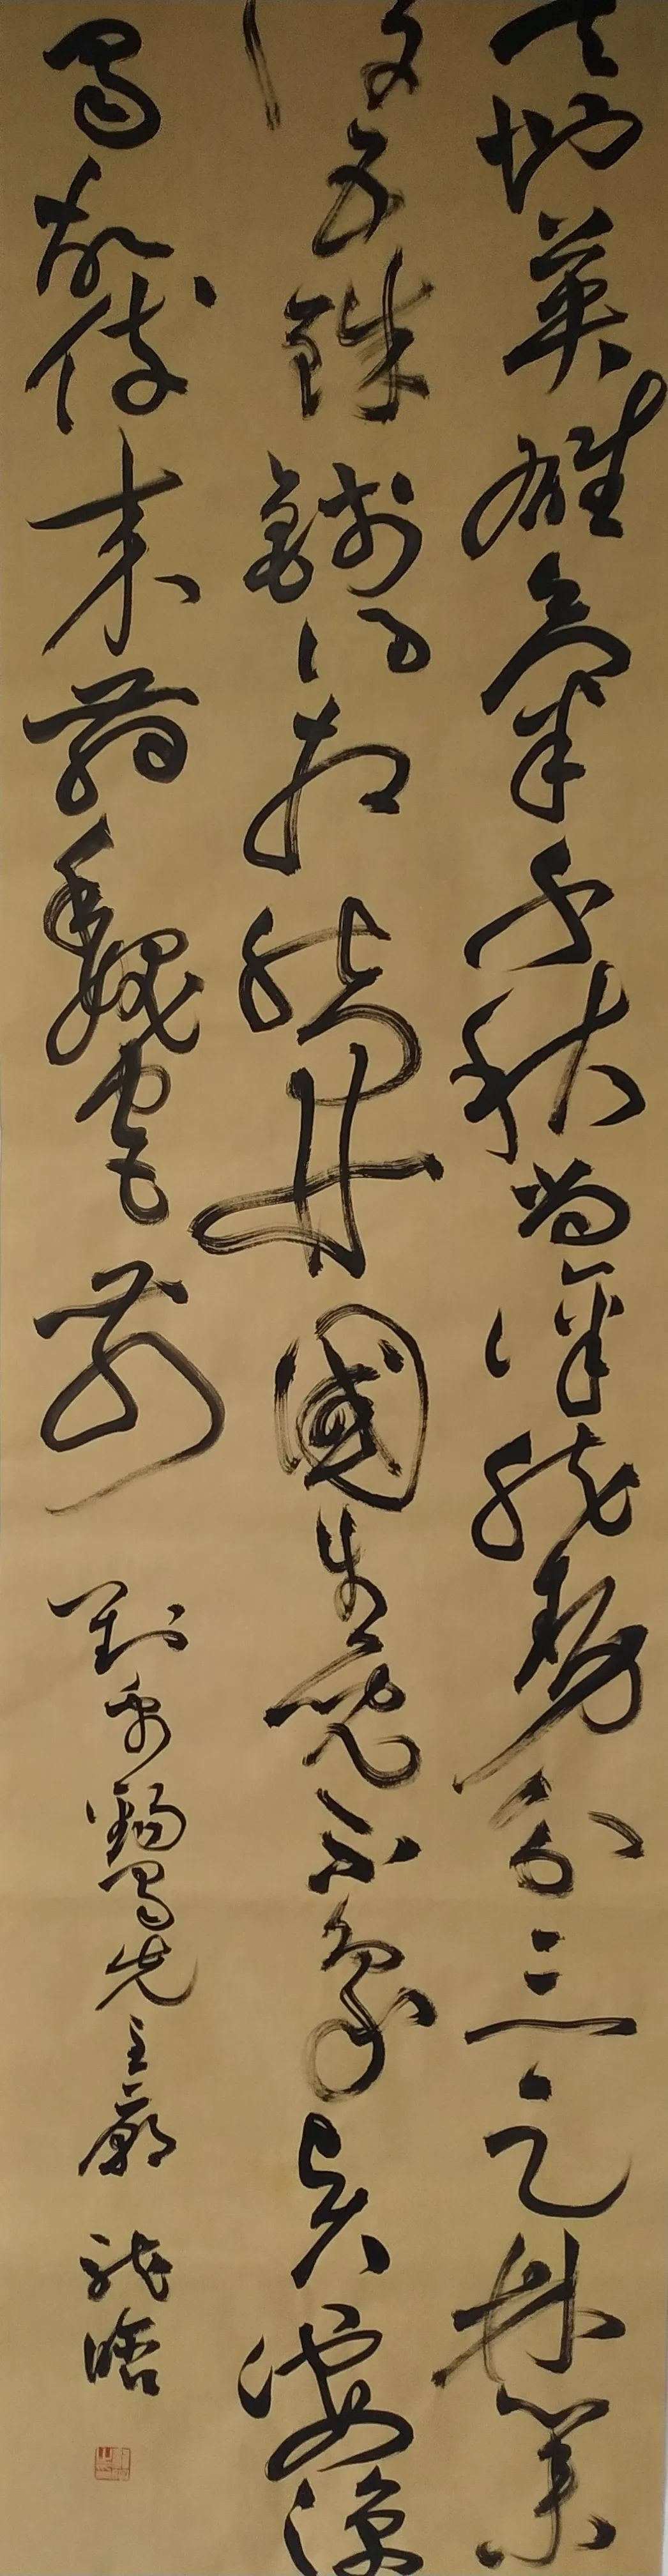 天地英雄氣千秋尚凜然勢分三足鼎業
復五銖錢得相能開國生兒不象賢淒涼
蜀故伎來舞魏宮前 劉禹錫蜀先主廟